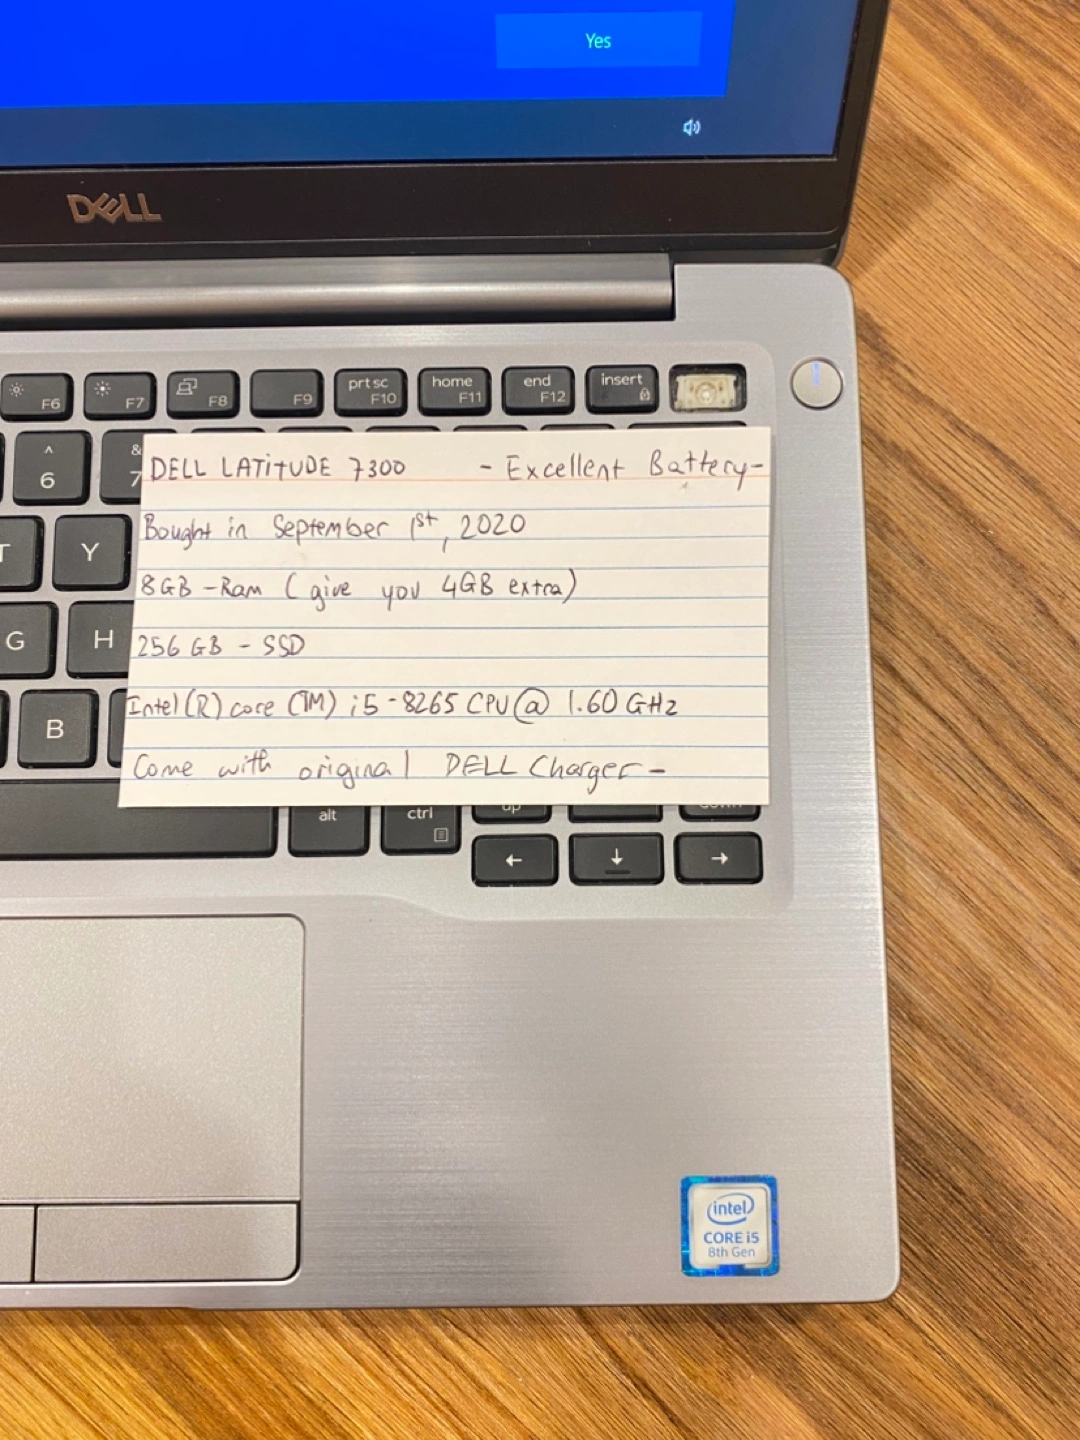 Yes
DELL
F6
F7
F8
F9
prt sc
F10
home
F11
end
F12
insert
^
6
&
7
T
Y
G
H
B
DELL LATITUDE 7300 - Excellent Battery-
Bought in September 1st, 2020
8GB - Ram (give you 4GB extra)
256 GB - SSD
Intel(R) core (TM) i5-8265 CPU@ 1.60 GHz
Come with original DELL Charger -
alt
ctrl
up
down
←
↓
→
intel
CORE i5
8th Gen